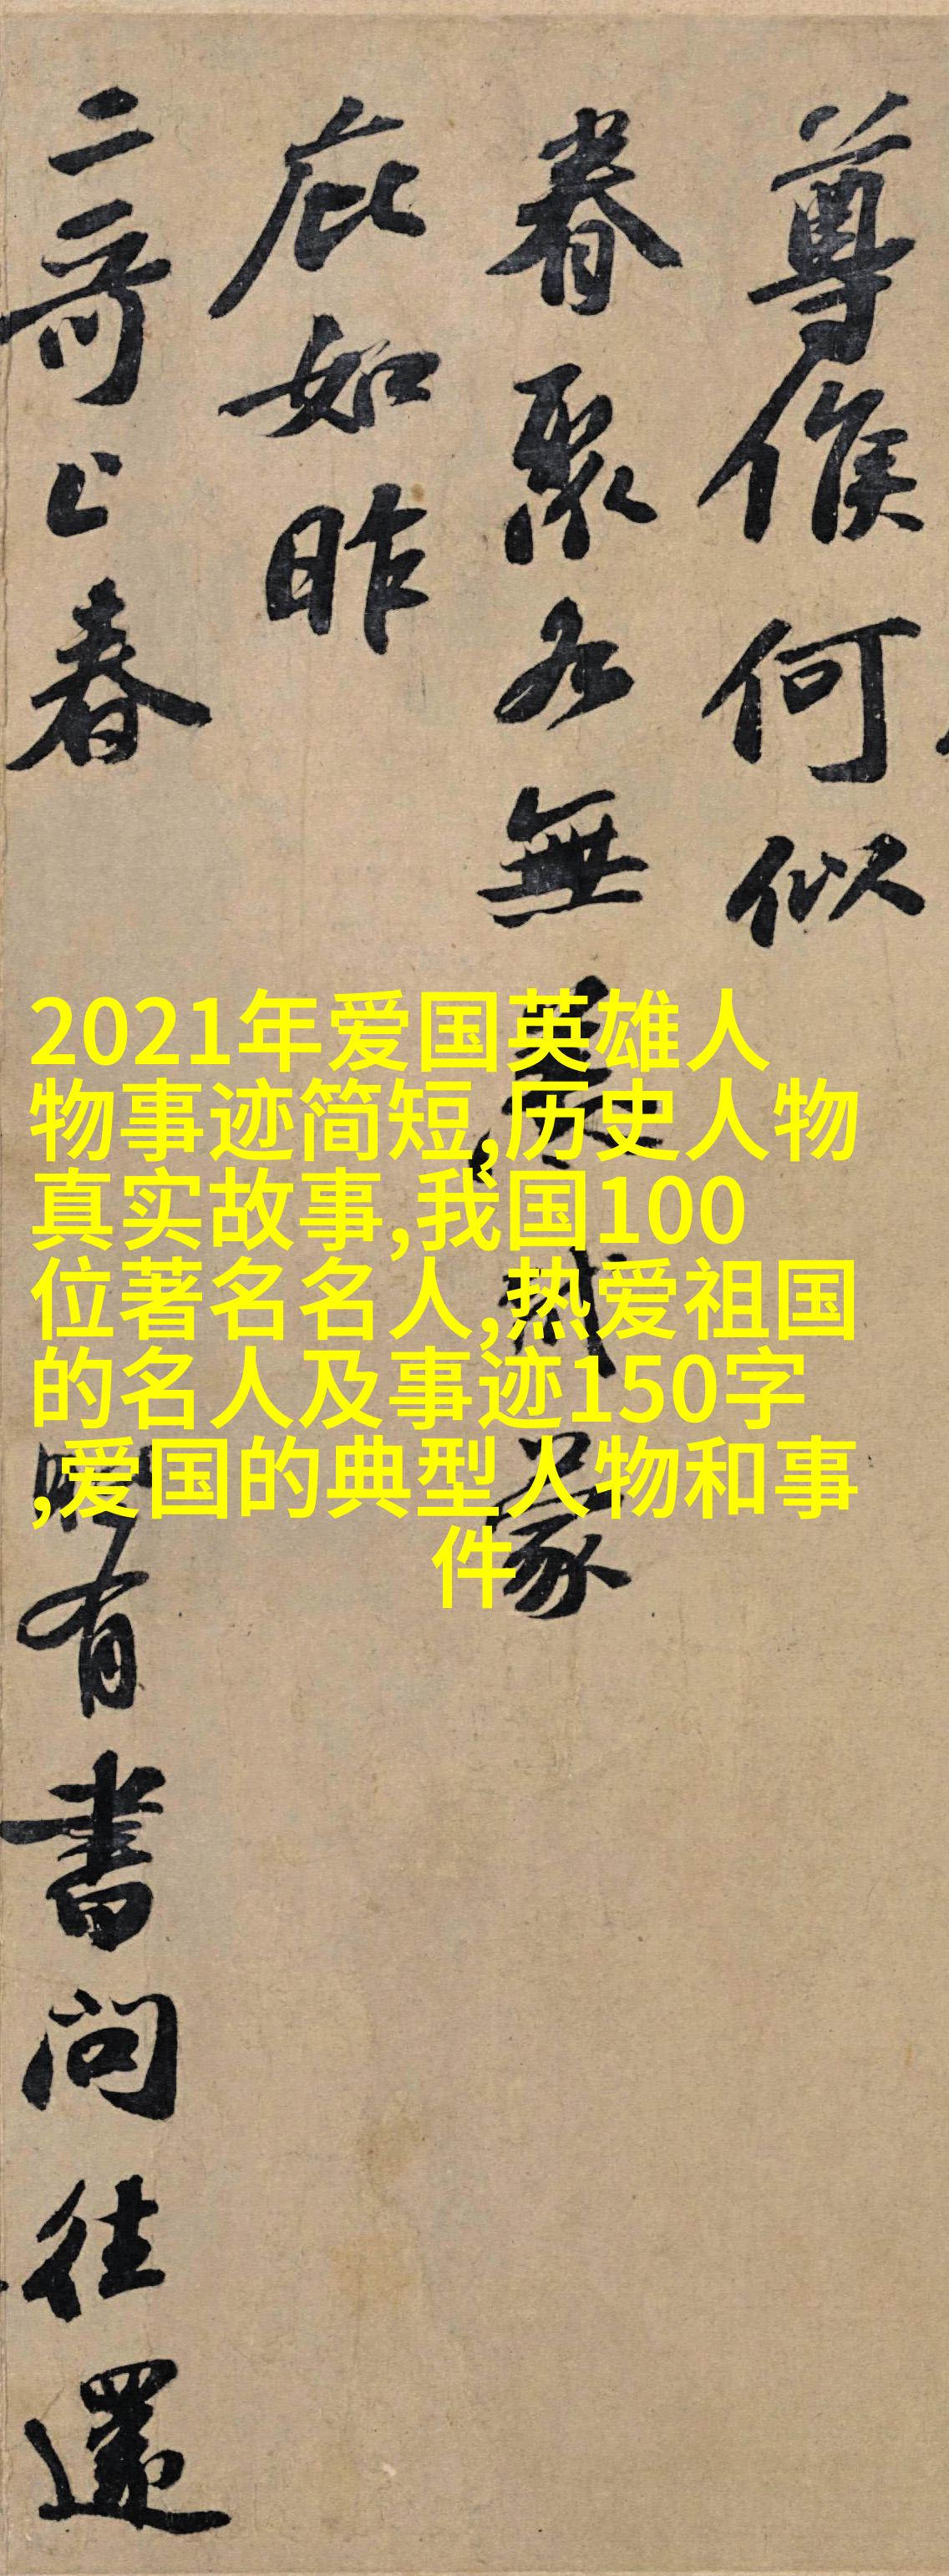 尊候何似
眷聚各無恙 蒙
庇如昨
二哥上春 有書問往還
2021年爱国英雄人
物事迹简短,历史人物
真实故事,我国100
位著名名人,热爱祖国
的名人及事迹150字
,爱国的典型人物和事
件